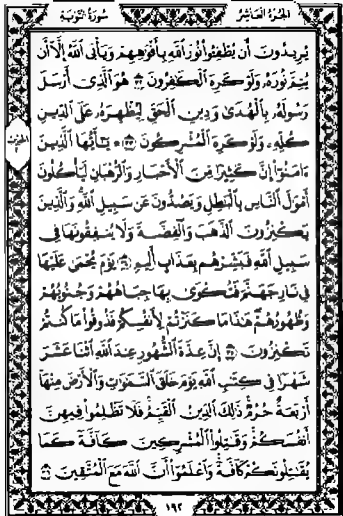 الجزء العاشر سورة التوبة
يُرِيدُونَ أَن يُطْفِـُٔوا۟ نُورَ ٱللَّهِ بِأَفْوَٰهِهِمْ وَيَأْبَى ٱللَّهُ إِلَّآ أَن
يُتِمَّ نُورَهُۥ وَلَوْ كَرِهَ ٱلْكَٰفِرُونَ ٣٢ هُوَ ٱلَّذِىٓ أَرْسَلَ
رَسُولَهُۥ بِٱلْهُدَىٰ وَدِينِ ٱلْحَقِّ لِيُظْهِرَهُۥ عَلَى ٱلدِّينِ
كُلِّهِۦ وَلَوْ كَرِهَ ٱلْمُشْرِكُونَ ٣٣ ۞ يَٰٓأَيُّهَا ٱلَّذِينَ
ءَامَنُوٓا۟ إِنَّ كَثِيرًا مِّنَ ٱلْأَحْبَارِ وَٱلرُّهْبَانِ لَيَأْكُلُونَ
أَمْوَٰلَ ٱلنَّاسِ بِٱلْبَٰطِلِ وَيَصُدُّونَ عَن سَبِيلِ ٱللَّهِ وَٱلَّذِينَ
يَكْنِزُونَ ٱلذَّهَبَ وَٱلْفِضَّةَ وَلَا يُنفِقُونَهَا فِى
سَبِيلِ ٱللَّهِ فَبَشِّرْهُم بِعَذَابٍ أَلِيمٍ ٣٤ يَوْمَ يُحْمَىٰ عَلَيْهَا
فِى نَارِ جَهَنَّمَ فَتُكْوَىٰ بِهَا جِبَاهُهُمْ وَجُنُوبُهُمْ
وَظُهُورُهُمْ هَٰذَا مَا كَنَزْتُمْ لِأَنفُسِكُمْ فَذُوقُوا۟ مَا كُنتُمْ
تَكْنِزُونَ ٣٥ إِنَّ عِدَّةَ ٱلشُّهُورِ عِندَ ٱللَّهِ ٱثْنَا عَشَرَ
شَهْرًا فِى كِتَٰبِ ٱللَّهِ يَوْمَ خَلَقَ ٱلسَّمَٰوَٰتِ وَٱلْأَرْضَ مِنْهَآ
أَرْبَعَةٌ حُرُمٌ ذَٰلِكَ ٱلدِّينُ ٱلْقَيِّمُ فَلَا تَظْلِمُوا۟ فِيهِنَّ
أَنفُسَكُمْ وَقَٰتِلُوا۟ ٱلْمُشْرِكِينَ كَآفَّةً كَمَا
يُقَٰتِلُونَكُمْ كَآفَّةً وَٱعْلَمُوٓا۟ أَنَّ ٱللَّهَ مَعَ ٱلْمُتَّقِينَ ٣٦
١٩٢